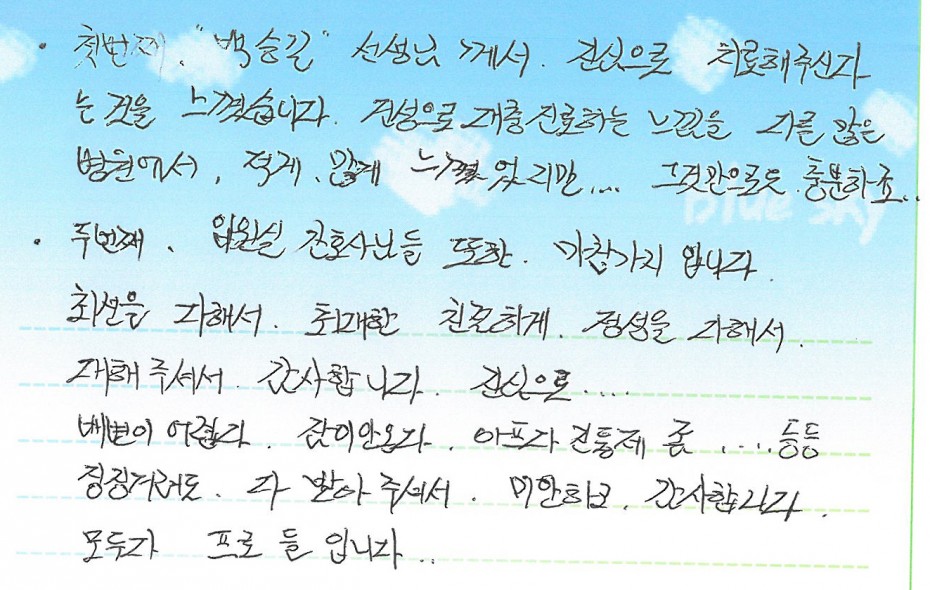 · 첫번째. "백승길" 선생님 께서. 진심으로 치료해주신다
는 것을 느꼈습니다. 건성으로 대충진료하는 느낌을 다른 많은
병원에서, 적게. 많게 느꼈었지만.... 그것만으로도 충분하죠..
· 두번째. 입원실 간호사님들 또한. 마찬가지 입니다.
최선을 다해서. 최대한 친절하게. 정성을 다해서.
대해 주셔서. 감사합니다. 진심으로....
배변이 어렵다. 잠이안온다. 아프다 진통제 좀 ....등등
징징거려도. 다 받아 주셔서. 미안하고. 감사합니다.
모두다 프로 들 입니다..
Blue Sky